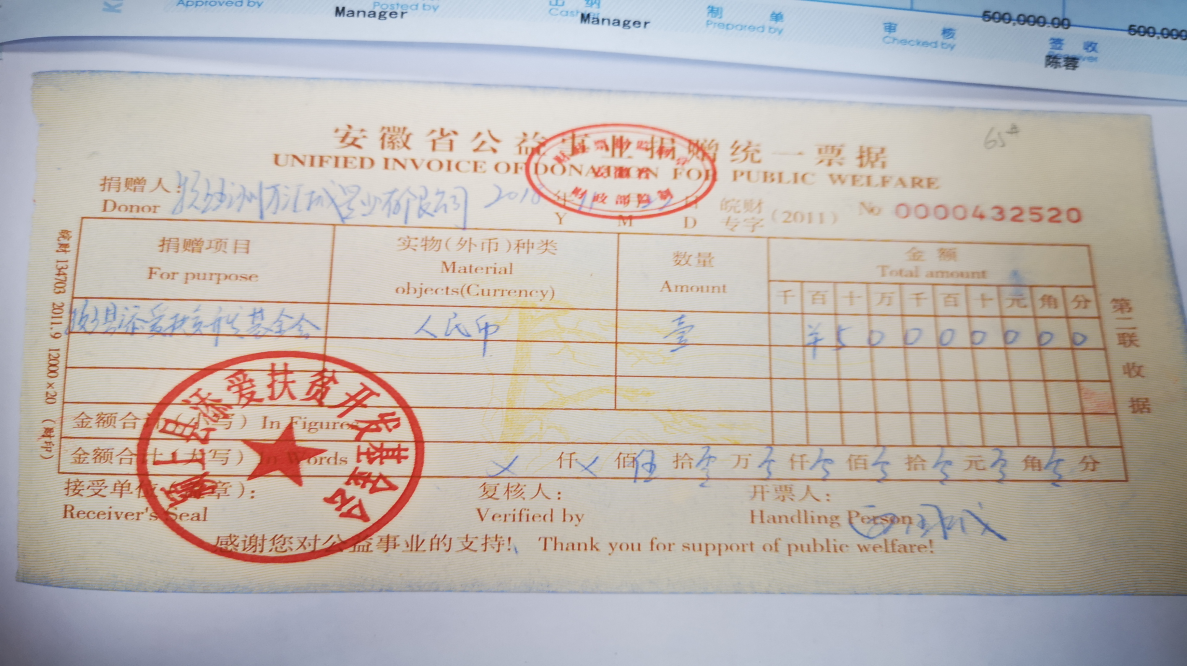 Approved by
Posted by
Manager
出 纳
Manager
制 单
Prepared by
审 核
Checked by
500,000.00
签 收
陈蓉
500,000
65#
安徽省公益事业捐赠统一票据
UNIFIED INVOICE OF DONATION FOR PUBLIC WELFARE
捐赠人:
Donor
置业有限公司
年 月 日
Y M D
皖财
专字
(2011)
No 0000432520
捐赠项目
For purpose
实物(外币)种类
Material
objects(Currency)
数量
Amount
金 额
Total amount
千 百 十 万 千 百 十 元 角 分
县添爱扶贫开发基金会
人民币
壹
¥ 5 0 0 0 0 0 0 0
金额合计(小写) In Figures
金额合计(大写) In Words
× 仟 × 佰 伍 拾 零 万 零 仟 零 佰 零 拾 零 元 零 角 零 分
接受单位(盖章):
Receiver's Seal
复核人:
Verified by
开票人:
Handling Person
感谢您对公益事业的支持! Thank you for support of public welfare!
县添爱扶贫开发基金会
皖财 134703 2011.9 12000×20 (财印)
第二联 收据